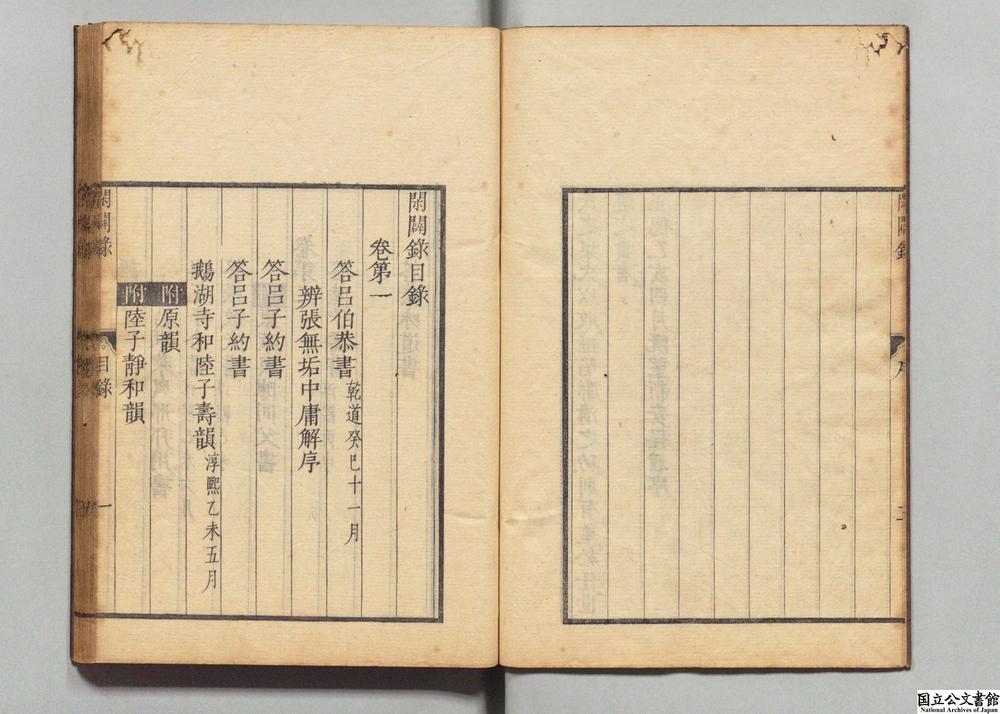 閑闢錄
序
二
閑闢錄目錄
卷第一
答呂伯恭書 乾道癸巳十一月
辨張無垢中庸解序
答呂子約書
答呂子約書
鵝湖寺和陸子壽韻 淳熙乙未五月
附 原韻
附 陸子靜和韻
閑闢錄
目錄
一
国立公文書館
National Archives of Japan